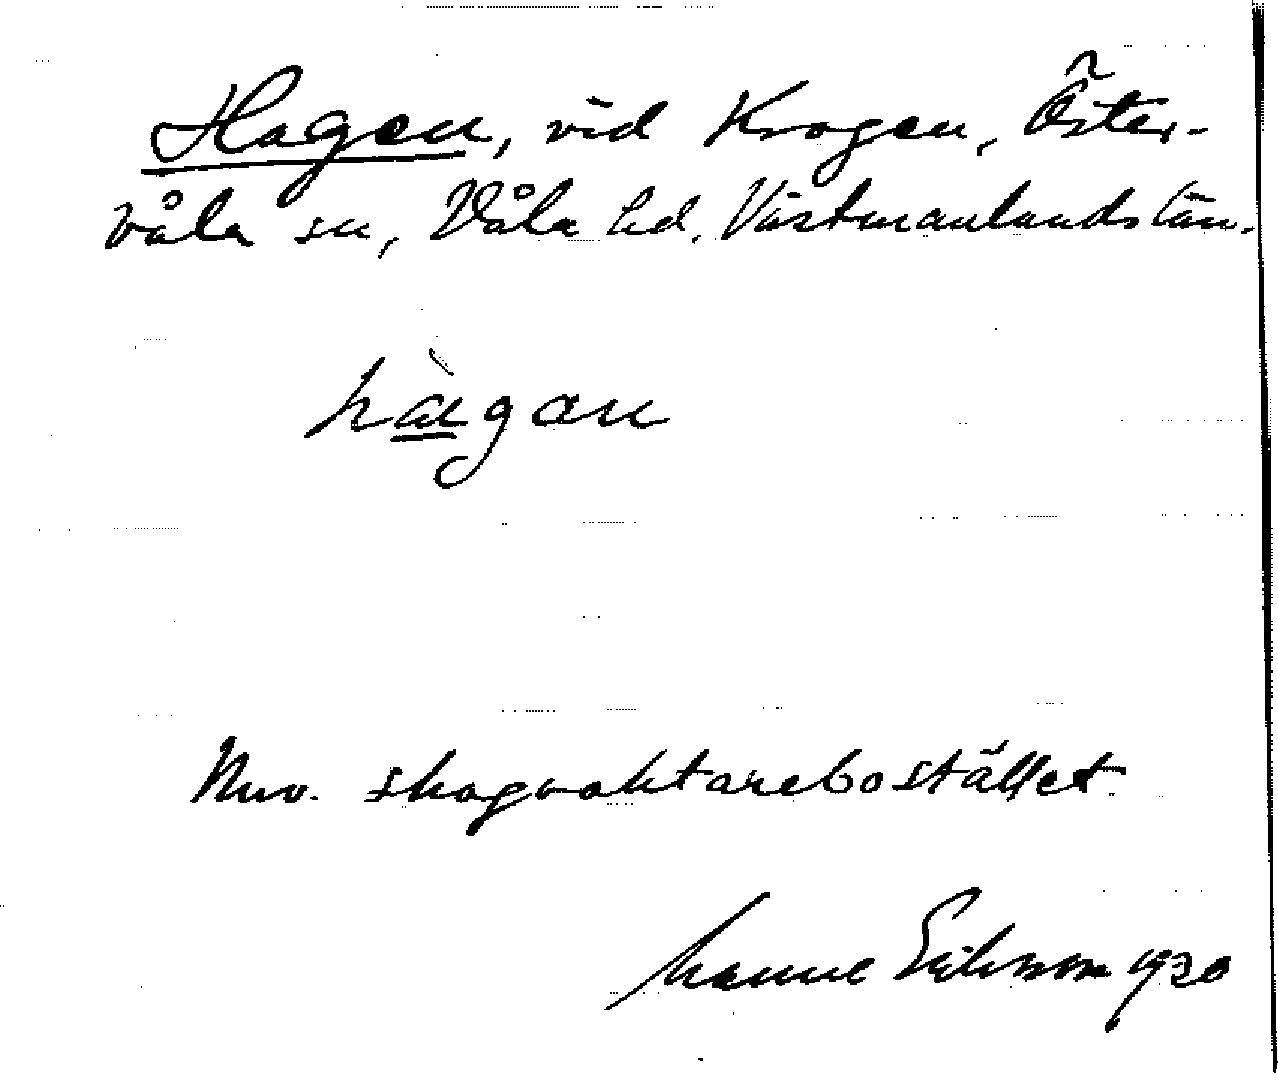 Hagen, vid Krogen, Öster-
våla sn, Våla hd. Västmanlands län.
hàgan
Nuv. skogvaktarebostället.
Manne Eriksson 1930